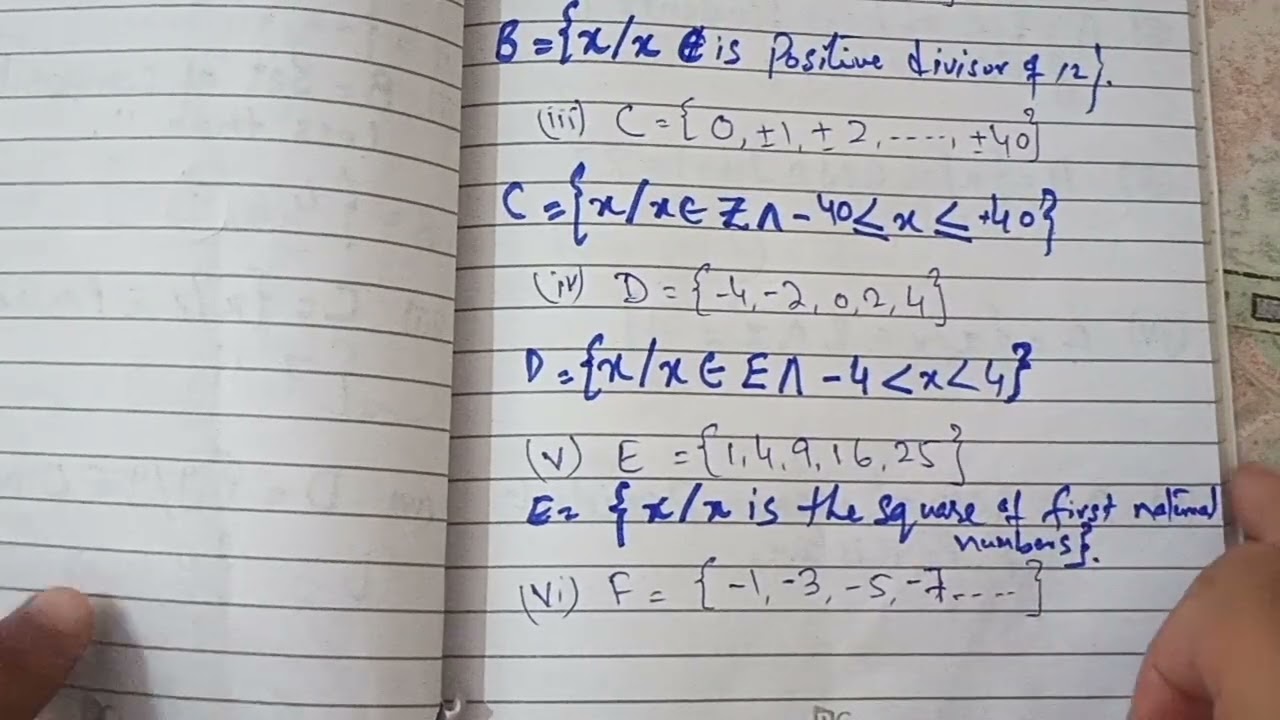 B = {x/x is Positive divisor of 12}.
(iii) C = { 0, ±1, ± 2, ....., ±40}
C = {x/x ∈ Z ∧ - 40 ≤ x ≤ +40}
(iv) D = {-4, -2, 0, 2, 4}
D = {x/x ∈ E ∧ - 4 < x < 4}
(v) E = {1, 4, 9, 16, 25}
E = {x/x is the square of first natural
numbers}.
(vi) F = { -1, -3, -5, -7..... }